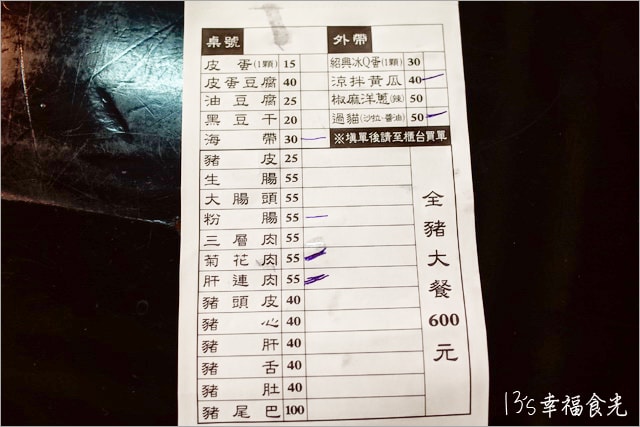 桌號 外帶
皮蛋(1顆) 15
皮蛋豆腐 40
油豆腐 25
黑豆干 20
海帶 30
豬皮 25
生腸 55
大腸頭 55
粉腸 55
三層肉 55
菊花肉 55
肝連肉 55
豬頭皮 40
豬心 40
豬肝 40
豬舌 40
豬肚 40
豬尾巴 100
紹興冰Q蛋(1顆) 30
涼拌黃瓜 40
椒麻洋蔥(辣) 50
過貓(沙拉、醬油) 50
※填單後請至櫃台買單
全豬大餐600元
13's幸福食光